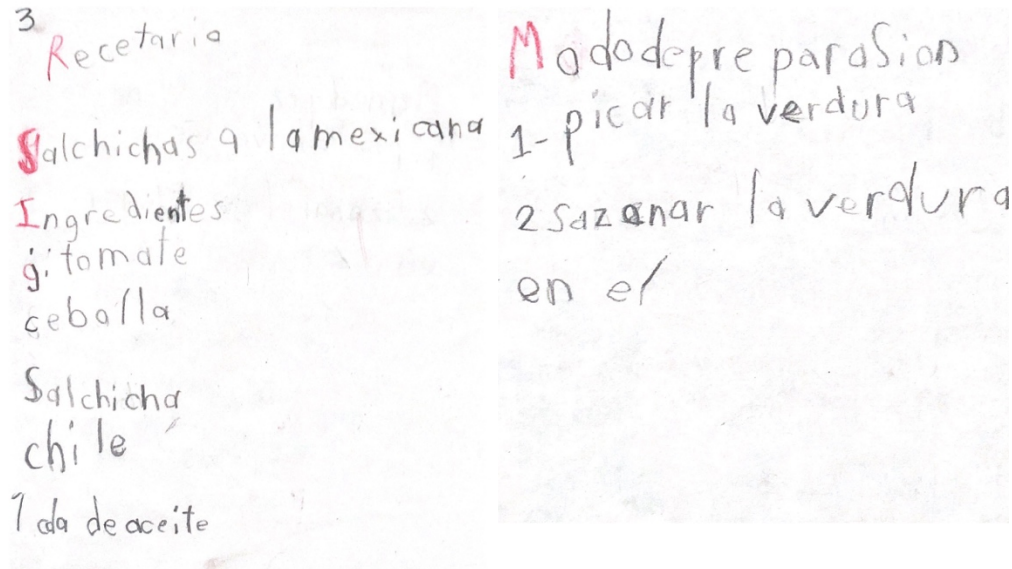 3
Recetario
Salchichas a lamexicana
Ingredientes
tomate
ceballa
Salchicha
chile
1 cda de aceite
Mododepre parasion
1- picar la verdura
2 sazonar la verdura
en el